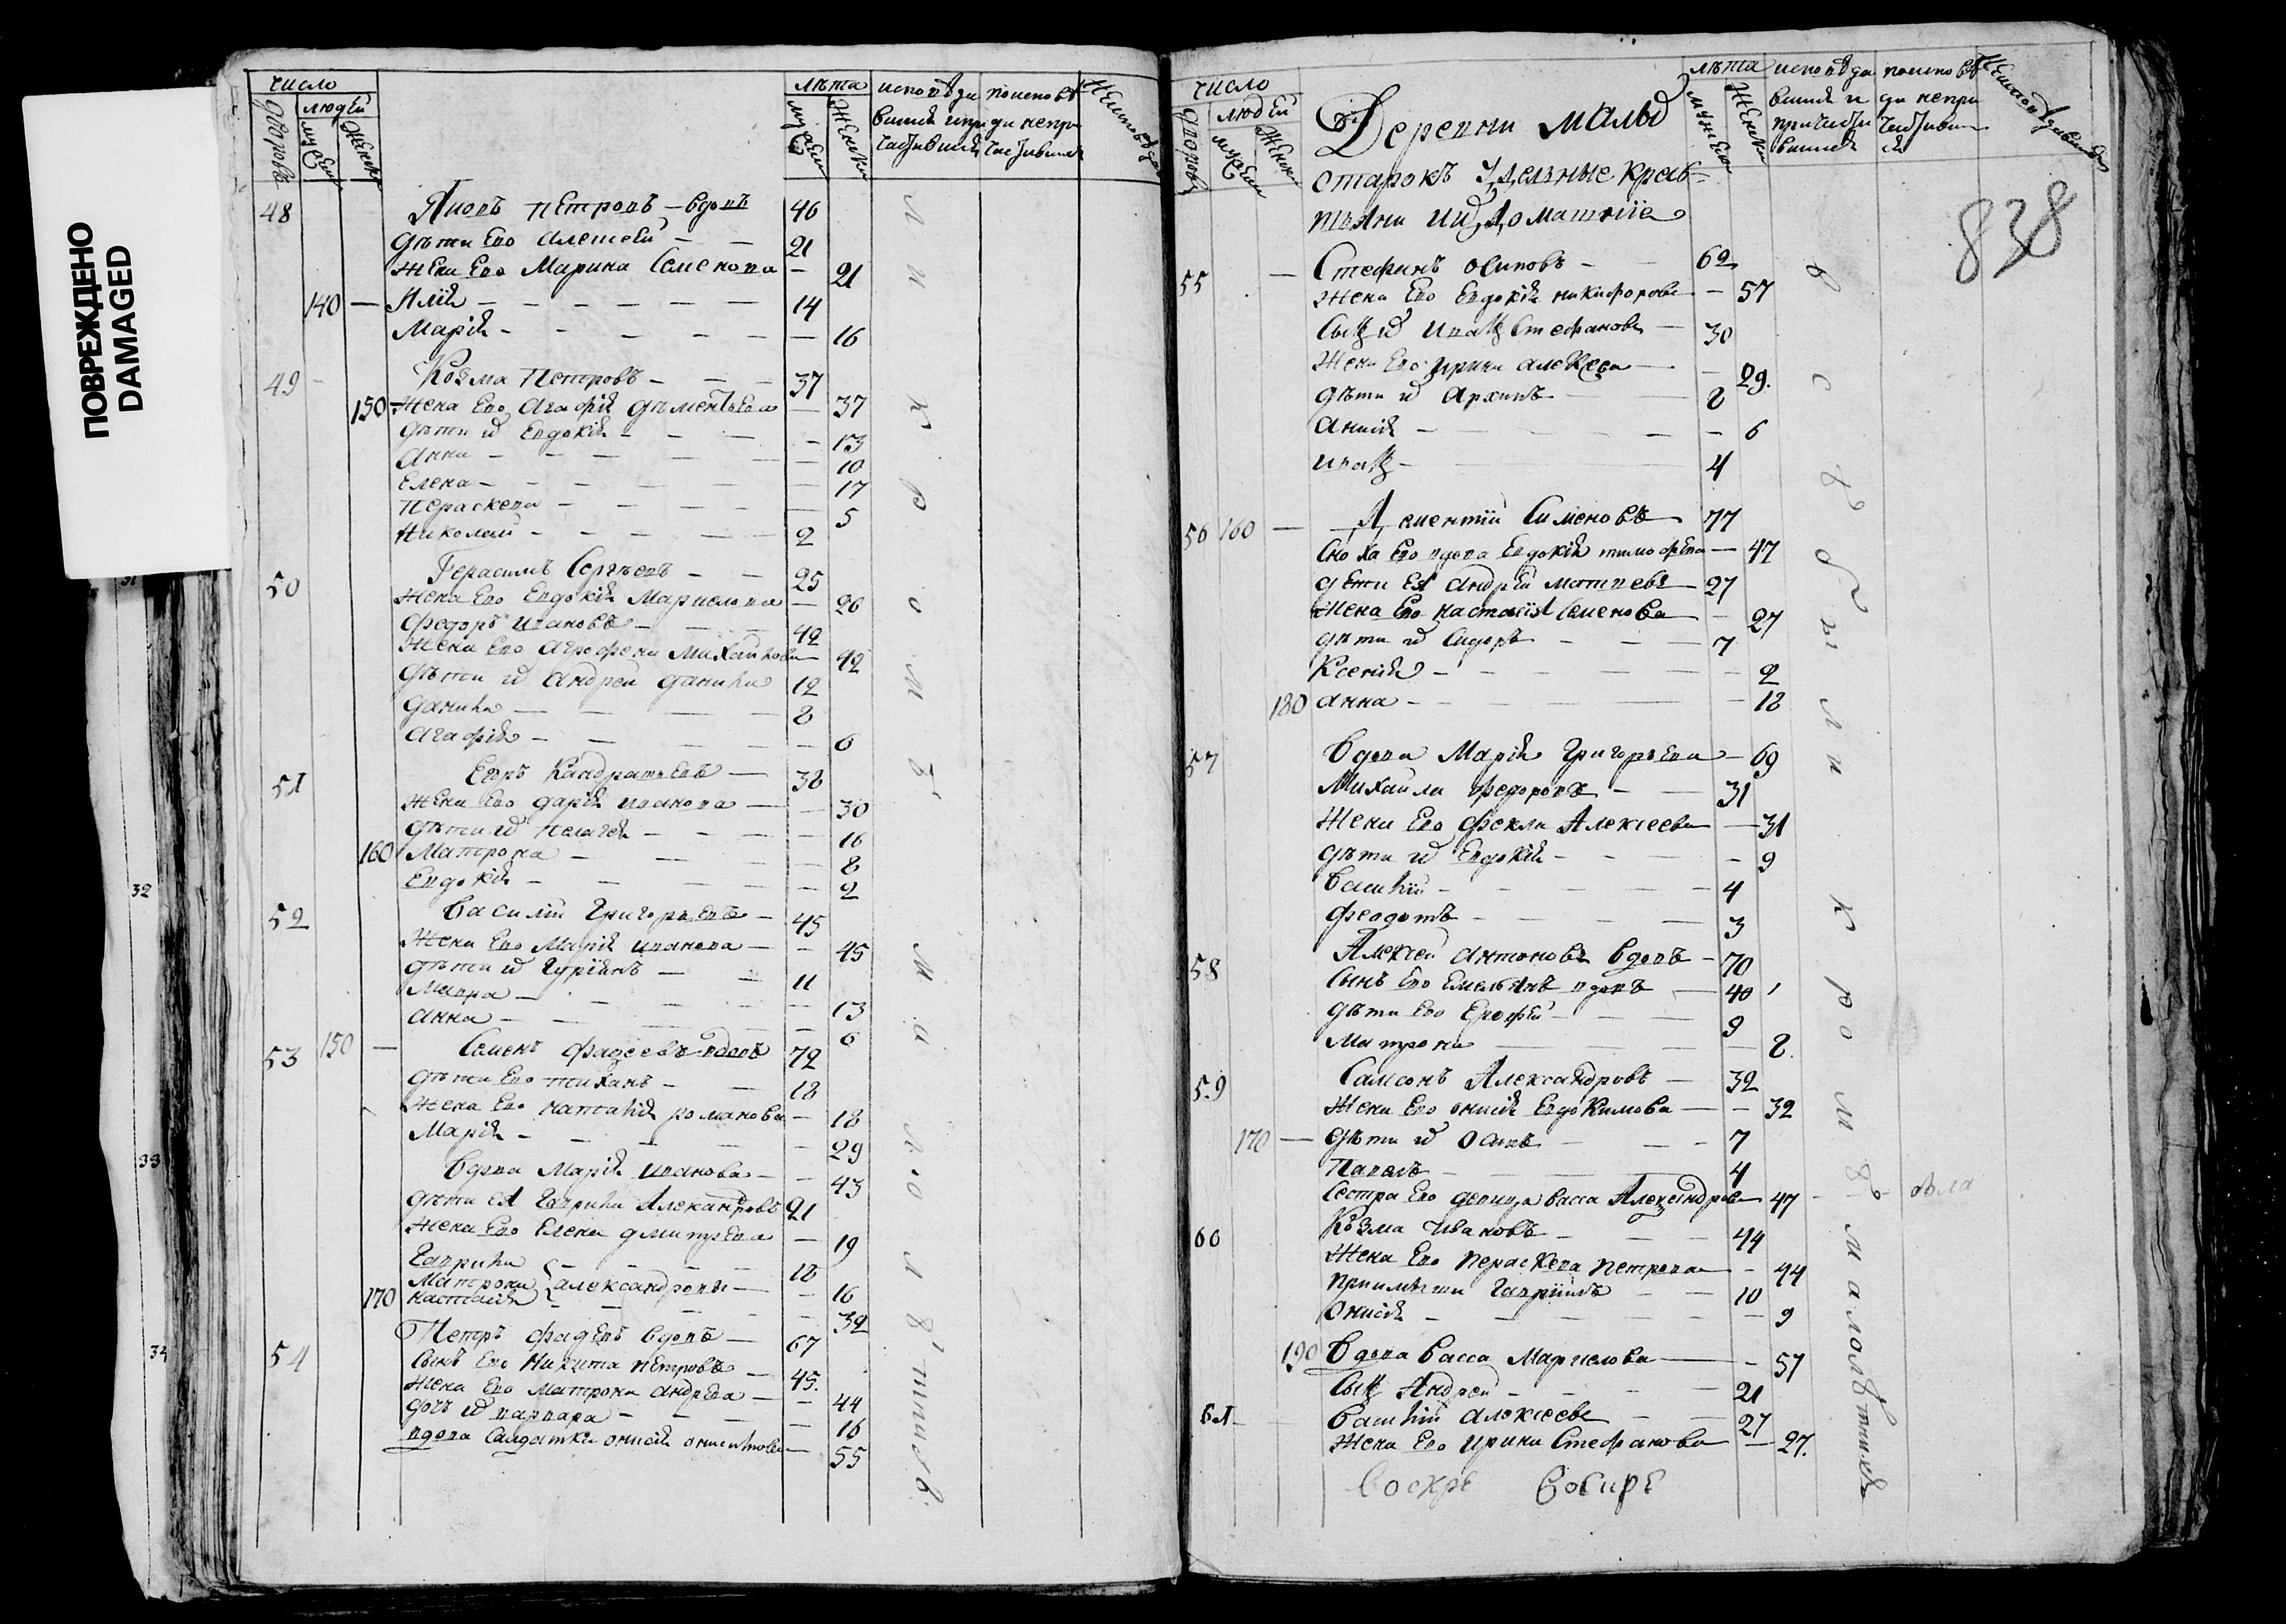 ПОВРЕЖДЕНО
DAMAGED
число
дворовъ
людей
мужеска
женска
лѣта
мужеска
женска
исповѣда
вшихся и при
частивших
поисповѣ
ди непри
частивших
48 Яковъ Петровъ — вдовъ 46
дѣти Его Алексей — — 21
жена Его Марина Семенова — 21
140 — Илія — — — — — — 14
Марія — — — — — 16
49 Козма Петровъ — — — 37
150 Жена Его Агафія Дѣментьева — 37
дѣти их Евдокія — — — 13
Анна — — — — — 10
Елена — — — — — 17
Параскева — — — — 5
Николай — — — — — 2
50 Герасимъ Сергѣевъ — — 25
Жена Его Евдокія Маркелова — 26
Федоръ Ивановъ — — — 42
Жена Его Агрофена Михайлова — 42
дѣти их Андрей Данила 12
Данила — — — — 8
Агафія — — — — 6
51 Егоръ Кандратьевъ — 38
Жена Его Дарія Иванова — 30
дѣти их Пелагея — — — 16
160 Матрона — — — — 8
Евдокія — — — — 2
52 Василій Григорьевъ — 45
Жена Его Марія Иванова — — 45
дѣти их Гуріянъ — — 11
Мавра — — — — 13
Анна — — — — 6
53 150 — Семенъ Фадеевъ вдовъ 72
дѣти Его Тиханъ — — 18
Жена Его Наталія Романова — 18
Марія — — — — 29
Вдова Марія Иванова — — 43
дѣти ея Гаврила Александровъ 21
Жена Его Елена Дмитрева — 19
Гаврила — — — — 18
Матрона Александровы — — 16
170 Настасія — — — — 32
54 Петръ Фадевъ вдовъ — 67
Сынъ Его Никита Петровъ — 45.
Жена Его Матрона Андрева — — 44
дочь их Варвара — — — 16
вдова Салдатка Онисія — 55
и кромѣ малолѣтних
32
33
34
число
дворовъ
людей
мужеска
женска
Деревни малы
Отарокъ Удельные крес=
тьяни и их домашніе
лѣта
мужеска
женска
исповѣда
вшихся и
причасти
вшихся
поисповѣ
ди непри
частивши
ся
838
55 — Стефанъ Осиповъ — — 62
Жена Его Евдокія Никифорова — 57
Сынъ их Иванъ Стефановъ — 30
Жена Его Ирина Алексева — — 29.
дѣти их Архипъ — — 8
Анисія — — — — 6
Иванъ — — 4
56 160 — Дементій Сименовъ — 77
Сноха Его вдова Евдокія Тимофева — 47
дети ея Андрей Матвевъ — 27
Жена Его Настасія Семенова — 27
дѣти их Сидоръ — — — 7
Ксенія — — — — — 2
180 Анна — — — — — 18
57 Вдова Марія Григорьева — 69
Михайла Федоровъ — — 31
Жена Его Фекла Алексеева — 31
дѣти их Евдокія — — — 9
Василій — — — — — 4
Феодотъ — — — — 3
58 Алексей Антоновъ вдовъ — 70
Сынъ Его Емельянъ вдовъ — 40
дѣти Его Ерофей — — — 9
Матрона — — — — 8.
59 Самсонъ Александровъ — 32
Жена Его Онисія Евдокимова — — 32
170 — дѣти их Осипъ — — — 7
Павелъ — — — 4
Сестра Его девица Васса Александрова 47
60 Козма Ивановъ — — — 44
Жена Его Пераскева Петрова — 44
Приимыши Гавріилъ — — 10
Онисія — — — — 9
190 Вдова Васса Маркелова — — 57
Сынъ Андрей — — — — 21
61 — Василій Алексеевъ — — 27
Жена Его Ирина Стефанова — 27.
Воскре Собире
всѣ были кромѣ малолѣтних